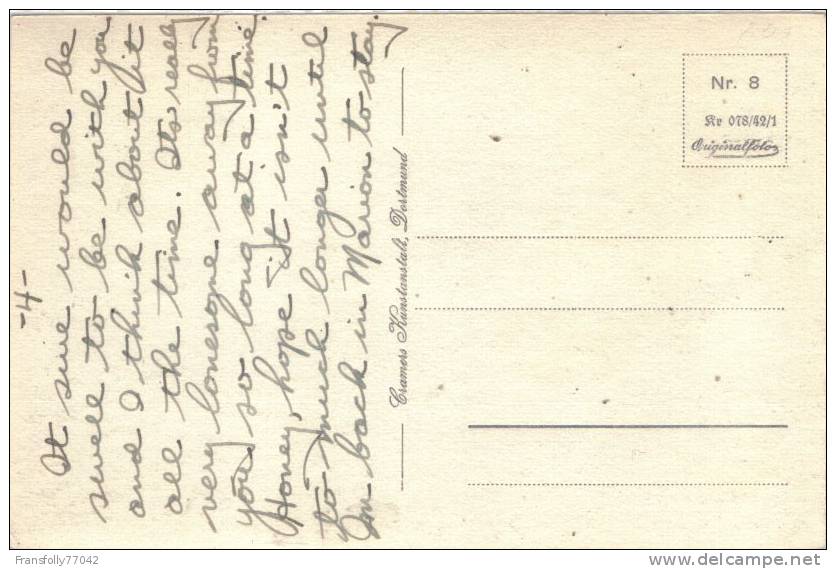 -4-
It sure would be
swell to be with you
and I think about it
all the time. Its really
very lonesome away from
you so long at a time.
Honey, hope it isn't
to much longer until
I'm back in Marion to stay.
Cramers Kunstanstalt, Dortmund
Nr. 8
Kr 078/42/1
Originalfoto
Fransfolly77042
www.delcampe.net